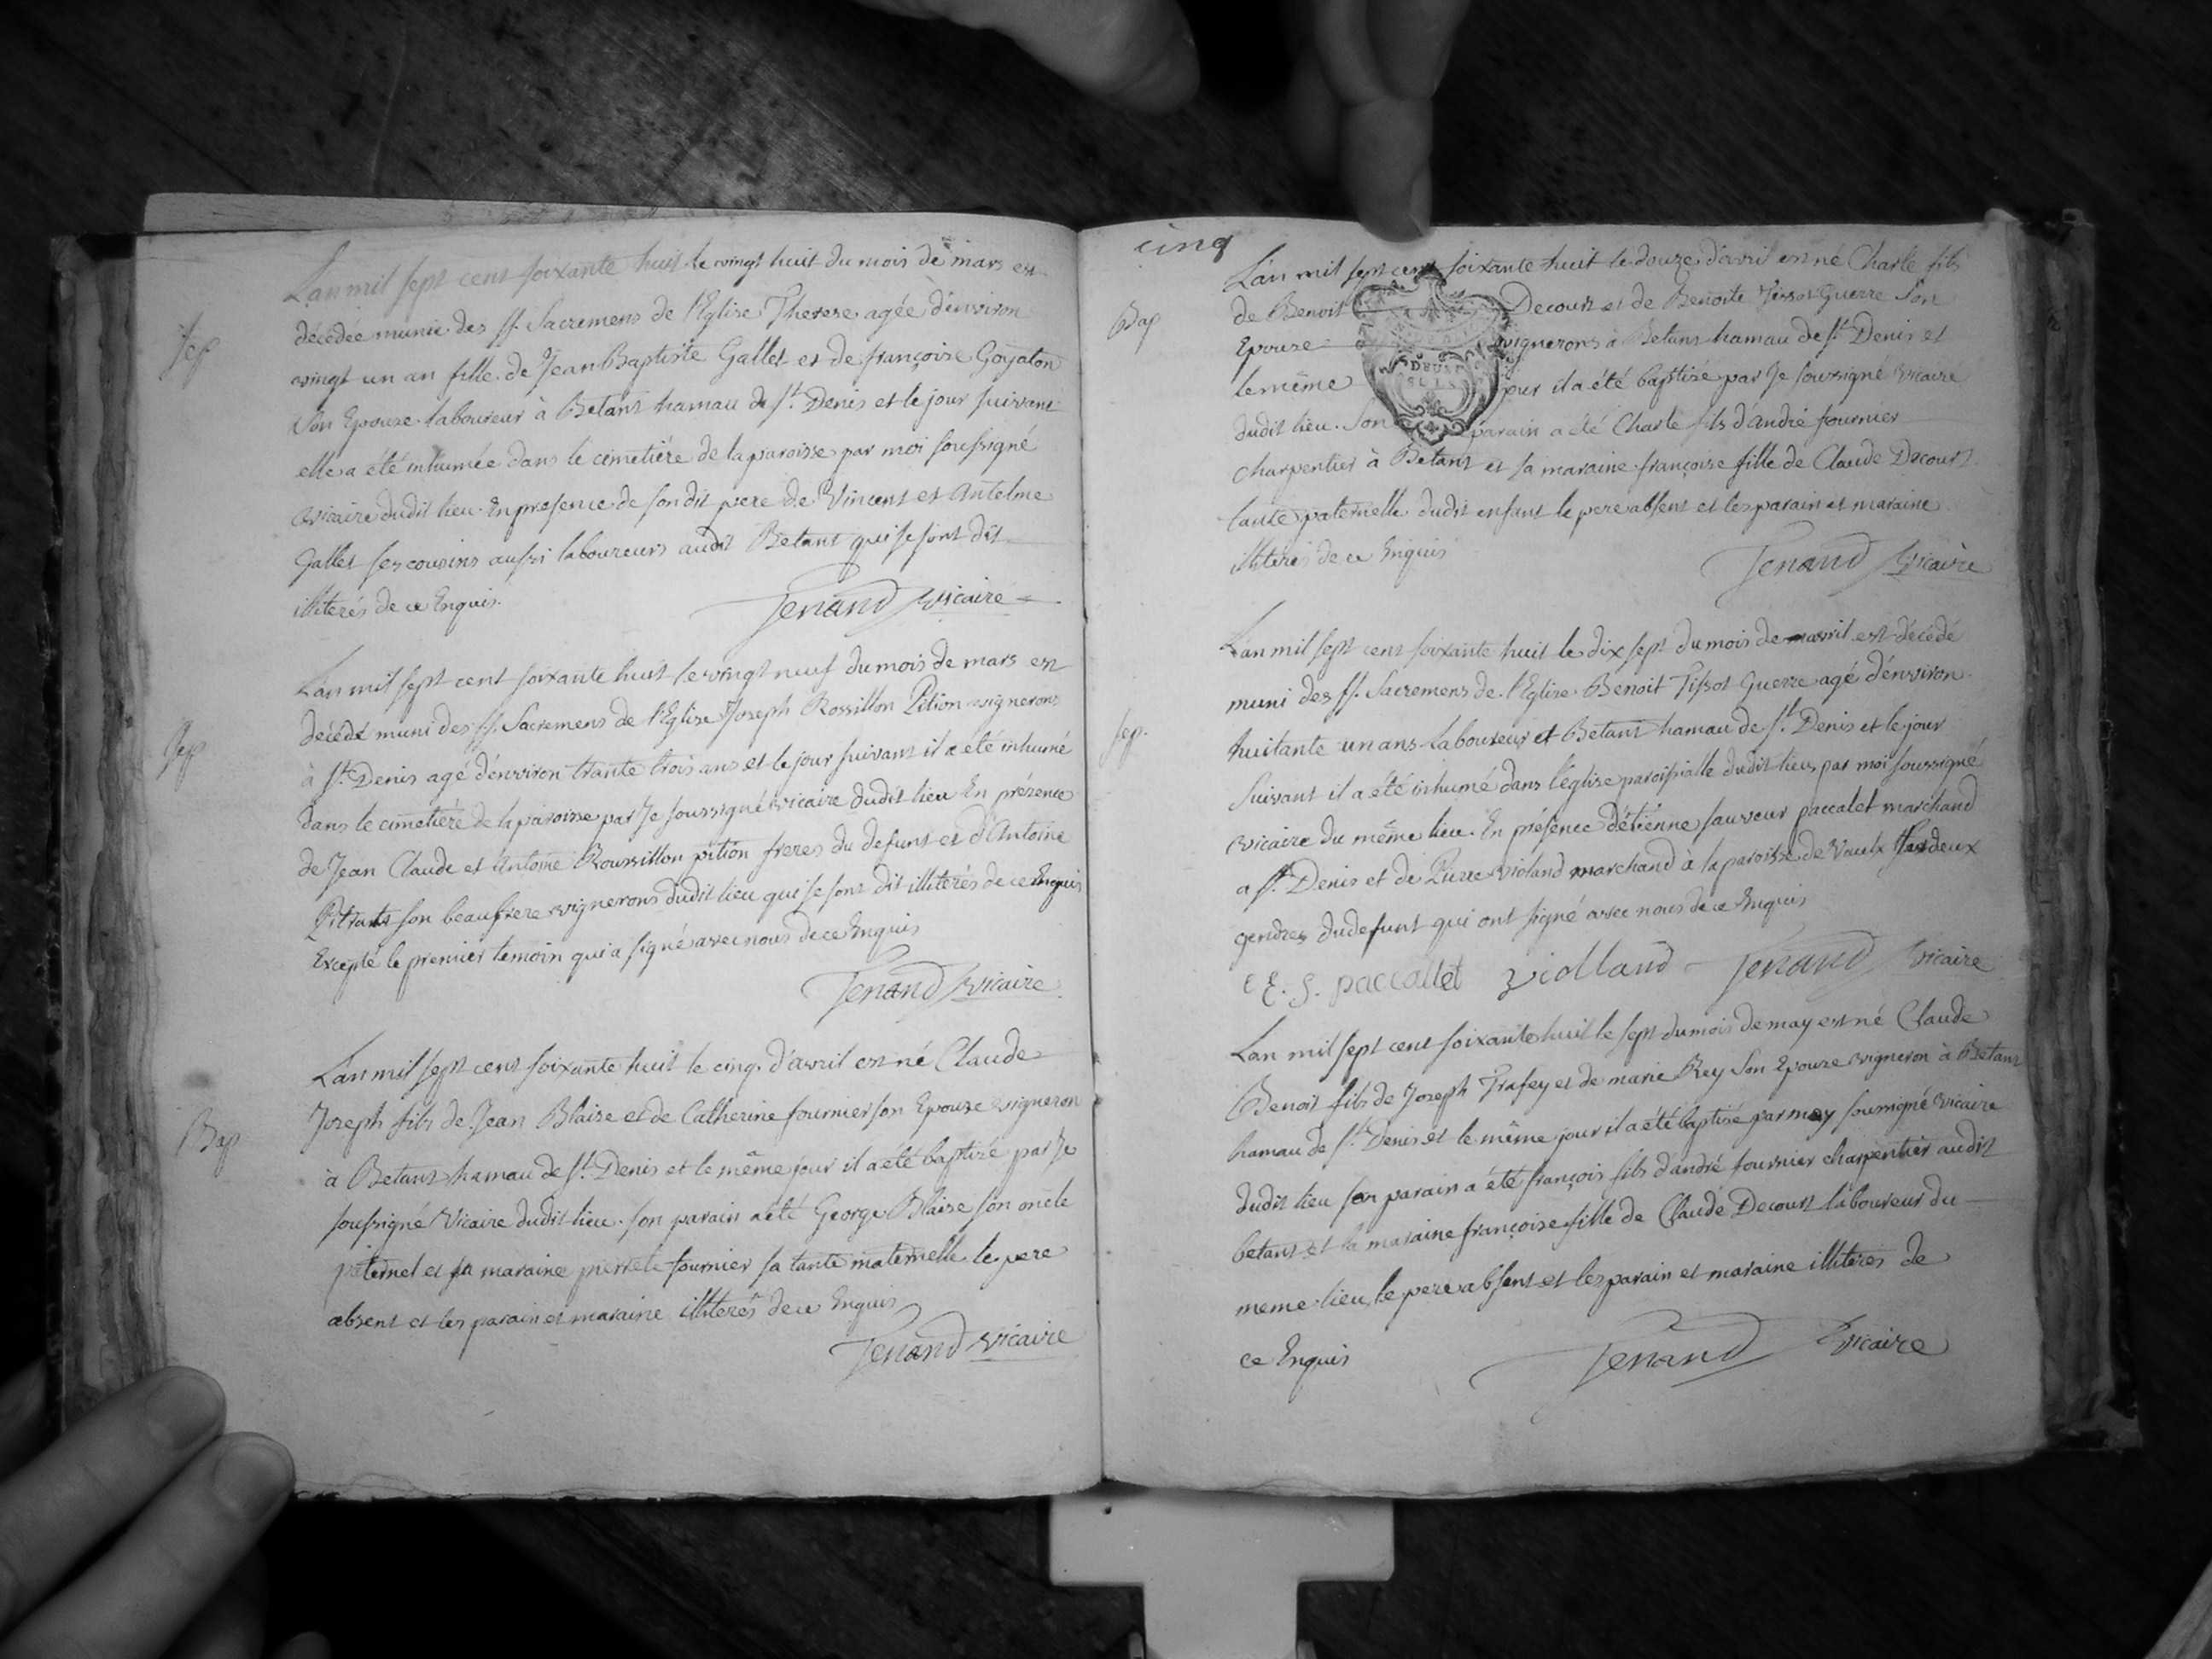 Sep
L'an mil sept cent soixante huit le vingt huit du mois de mars est
décédée munie des SS. Sacremens de l'Eglise Therese agée d'environ
vingt un an fille de Jean Baptiste Gallet et de françoise Goyaton
Son Epouse laboureur à Betant hamau de St. Denis et le jour suivant
elle a été inhumée dans le cimetiére de la paroisse par moi soussigné
vicaire dudit lieu. En presence de son dit pere de Vincent et Antelme
Gallet ses cousins aussi laboureurs audit Betant qui se sont dit
illiterés de ce Enquis.
Jenand vicaire
Sep
L'an mil sept cent soixante huit le vingt neuf du mois de mars est
décédé muni des SS. Sacremens de l'Eglise Joseph Rossillon Pition vignerons
à St. Denis agé d'environ trante trois ans et le jour suivant il a été inhumé
dans le cimetiére de la paroisse par Je soussigné vicaire dudit lieu En prézence
de Jean Claude et Antoine Roussillon pition freres du defunt et d'Antoine
son beaufrere vignerons dudit lieu qui se sont dit illiterés de ce Enquis
Excepté le premier temoin qui a signé avec nous de ce Enquis
Jenand vicaire
Bap
L'an mil sept cent soixante huit le cinq d'avril est né Claude
Joseph fils de Jean Blaise et de Catherine fournier son Epouse vigneron
à Betant hamau de St. Denis et le même jour il a été baptizé par Je
soussigné Vicaire dudit lieu. son parain a été George Blaise son oncle
paternel et sa maraine pierrete fournier sa tante maternelle le pere
absent et les parain et maraine illiterés de ce Enquis
Jenand vicaire
cinq
Bap
L'an mil sept cent soixante huit le douze d'avril est né Charle fils
de Benoit Decourt et de Benoite Tissot Guerre Son
Epouse vignerons à Betant hamau de St. Denis et
le même jour il a été baptizé par Je soussigné vicaire
dudit lieu. Son parain a été Charle fils d'andré fournier
charpentier à Betant et sa maraine françoise fille de Claude Decourt
tante paternelle dudit enfant le pere absent et les parain et maraine
illiterés de ce Enquis
Jenand Vicaire
Sep.
L'an mil sept cent soixante huit le dix sept du mois de avril est décédé
muni des SS. Sacremens de l'Eglise Benoit Tissot Guerre agé d'environ
huitante un ans laboureur et Betant hamau de St. Denis et le jour
suivant il a été inhumé dans l'église paroissialle dudit lieu par moi soussigné
vicaire du même lieu. En présence d'étienne sauveur paccalet marchand
a St. Denis et de Pierre violand marchand à la paroisse de Vaulx deux
gendres du defunt qui ont signé avec nous de ce Enquis
E. S. paccallet violland Jenand vicaire
L'an mil sept cent soixante huit le sept du mois de may est né Claude
Benoit fils de Joseph Trafey et de marie Rey Son Epouse vigneron à Betant
hamau de St. Denis et le même jour il a été baptisé par moy soussigné vicaire
dudit lieu son parain a été françois fils d'andré fournier charpentier audit
betant et la maraine françoise fille de Claude Decourt laboureur du
meme lieu, le pere absent et les parain et maraine illiteres de
ce Enquis
Jenand Vicaire